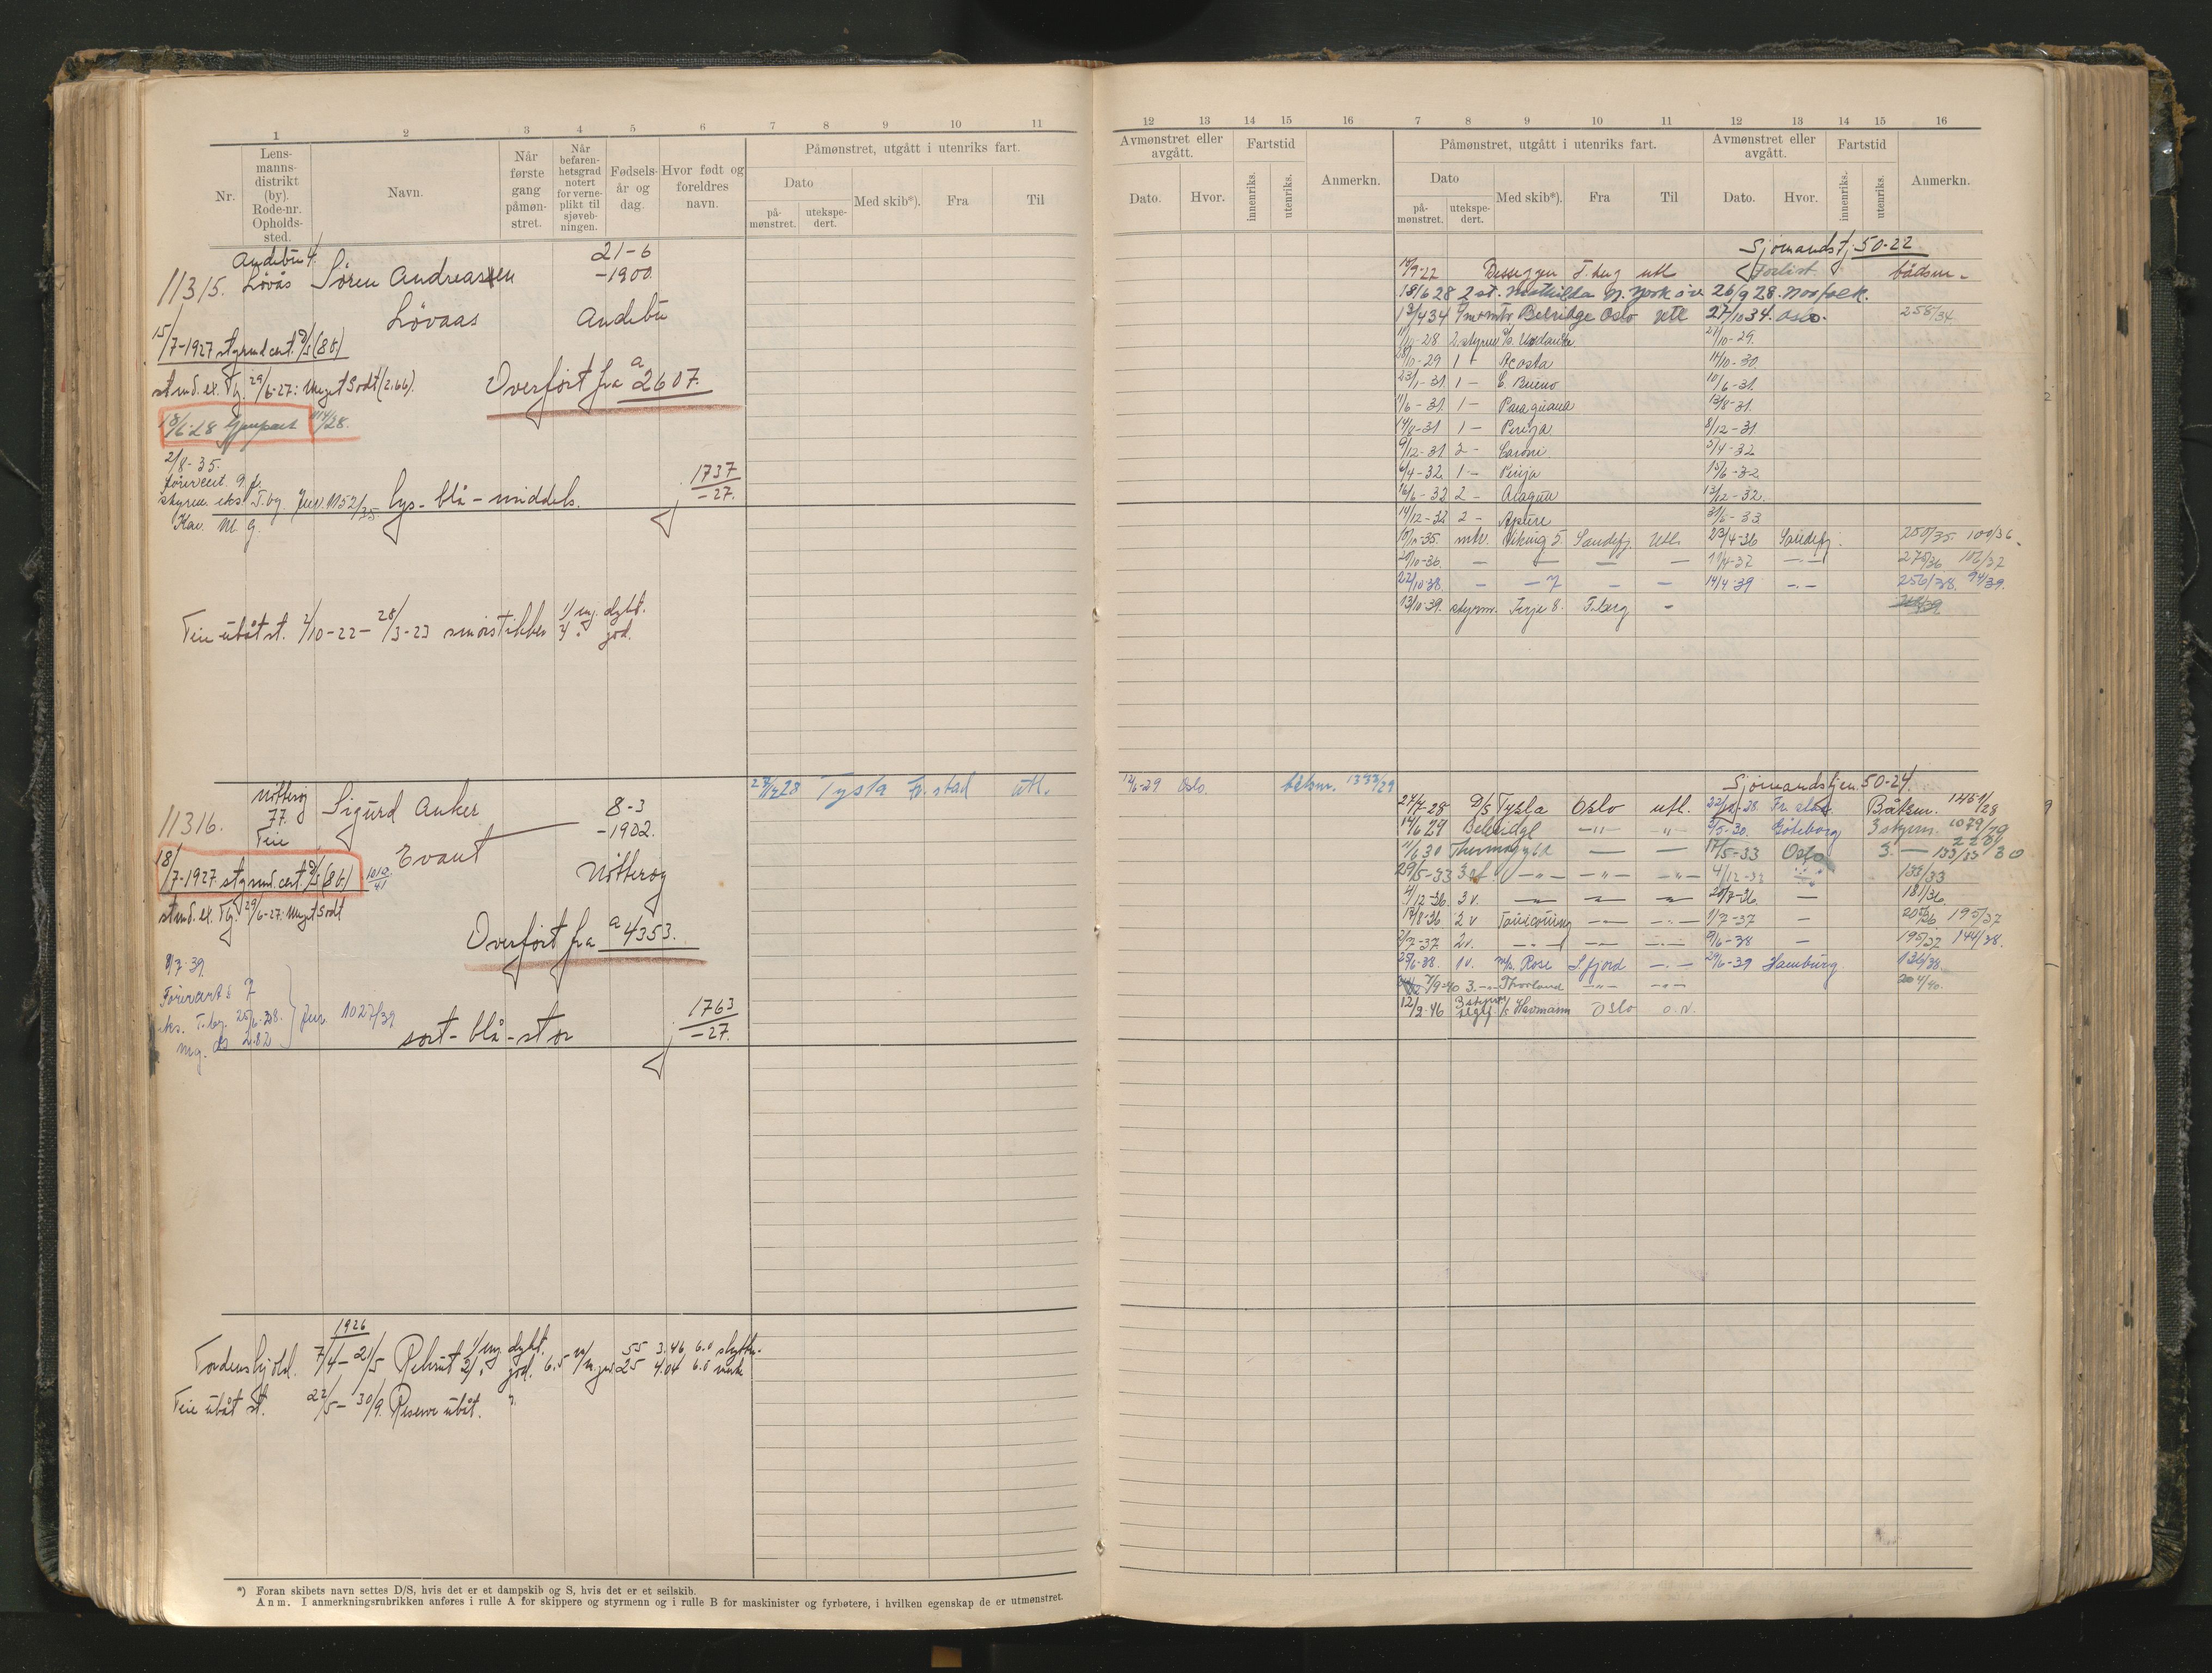 1 2 3 4 5 6 7 8 9 10 11
Nr.
Lens-
manns-
distrikt
(by).
Rode-nr.
Opholds-
sted.
Navn.
Når
første
gang
påmøn-
stret.
Når
befaren-
hetsgrad
notert
for verne-
plikt til
sjøveb-
ningen.
Fødsels-
år og
dag.
Hvor født og
foreldres
navn.
Påmønstret, utgått i utenriks fart.
Dato
på-
mønstret.
utekspe-
dert.
Med skib*).
Fra
Til
Andebu 4.
11315. Løvås Søren Andreassen 21-6
-1900.
Løvaas Andebu
15/7-1927 styrmd.cert. D/s (86)
Overført fra a 2607.
stmd. ex. Tbg. 29/6-27: Meget Godt (2.66).
18/6-28 Gjenpart 114/28.
2/8-35.
førercert. 9. f.
styrm. eks. T.bg. Jnr. 1152/35 lys - blå - middels. 1737
-27.
Kar. M. g.
Teie ubåtst. 2/10-22 - 28/3-23 minørstikker 1/ mg. dykt.
2/ " god.
Nøtterøy
11316. 77. Sigurd Anker 8-3
Teie -1902.
Evant Nøtterøy
18/7-1927 styrmd.cert. D/s (86) 1010/41
stmd. ex. Tbg. 29/6-27: Meget Godt
Overført fra a 4353.
8/7-39.
Jnr. 1027/39
eks. T.bg. 25/6-38.
mg. ds 2.82
sort - blå - stor 1763
-27.
27/12 28 Tysla Fr.stad utl.
1926
Tordenskjold. 7/4 - 21/5 Rekrut 1/ mg. dykt. 55 3.46 6.0
2/ " god. 6.5 25 4.04 6.0
Teie ubåt st. 22/5 - 30/9. Reserve ubåt. "
*) Foran skibets navn settes D/S, hvis det er et dampskib og S, hvis det er et seilskib.
Anm. I anmerkningsrubrikken anføres i rulle A for skippere og styrmenn og i rulle B for maskinister og fyrbøtere, i hvilken egenskap de er utmønstret.
12 13 14 15 16 7 8 9 10 11 12 13 14 15 16
Avmønstret eller
avgått.
Fartstid
Dato.
Hvor.
innenriks.
utenriks.
Anmerkn.
Påmønstret, utgått i utenriks fart.
Dato
på-
mønstret.
utekspe-
dert.
Med skib*).
Fra
Til
Avmønstret eller
avgått.
Dato.
Hvor.
Fartstid
innenriks.
utenriks.
Anmerkn.
Sjømandstj. 50-22
Besseggen T.berg utl Forlist. bådsm.
18/6 28 2 st. Mathilda N. York o.v. 26/9 28. Norfolk.
Belridge Oslo Utl 27/10 34. Oslo. 258/34
11/10-28 2 styrm 27/10-29.
29 1 " Acosta 14/10-30.
23/1-31. 1 - C. Bueno 10/6-31.
11/6-31. 1 - Paraguana 13/8-31.
14/8-31 1 - Perija 8/12-31.
9/12-31 2 - Caroni 5/4-32
6/4-32 1 - Perija 15/6-32
16/6-32 2 - Aragua 13/12-32.
14/12-32 2 - Apure 31/5-33
10/10-35. mtr. Viking 5. Sandefj. Utl. 23/4-36 Sandefj. 250/35. 100/36.
20/10-36. - - - - 17/4-37 -.- 275/36 102/37
22/10-38. - - 7 - - 14/4-39 -.- 256/38. 94/39.
13/10-39. styrm. Terje 8. T.berg -
12/6-29 Oslo. båtsm. 1333/29
Sjømandstjen. 50-24.
27/7-28 D/S Tysla Oslo utl. 22/12-28. Fr. stad Båtsm. 1451/28
14/6 29 Belridge -"- -"- 2/5-30. Göteborg 3 styrm. 1079/29
11/6 30 Thermopylæ - - 17/5-33 Oslo 3. - 133/33
29/5-33 3 st. -"- -"- -"- 4/12-33 133/33
4/12-36 3 v. - - - 20/7-36. - 181/36.
17/8-36 2 v - - 1/7-37 - 205/36 195/37
2/7-37. 2 v. - - - 9/6-38 - 195/37 144/38.
25/6-38. 1 v. M/s. Rose S.fjord - 29/6-39 Hamburg. 136/38.
7/9-40 3. - Thorland -"- -"- 204/40.
12/2-46 3 styrm Havmann Oslo o.v.